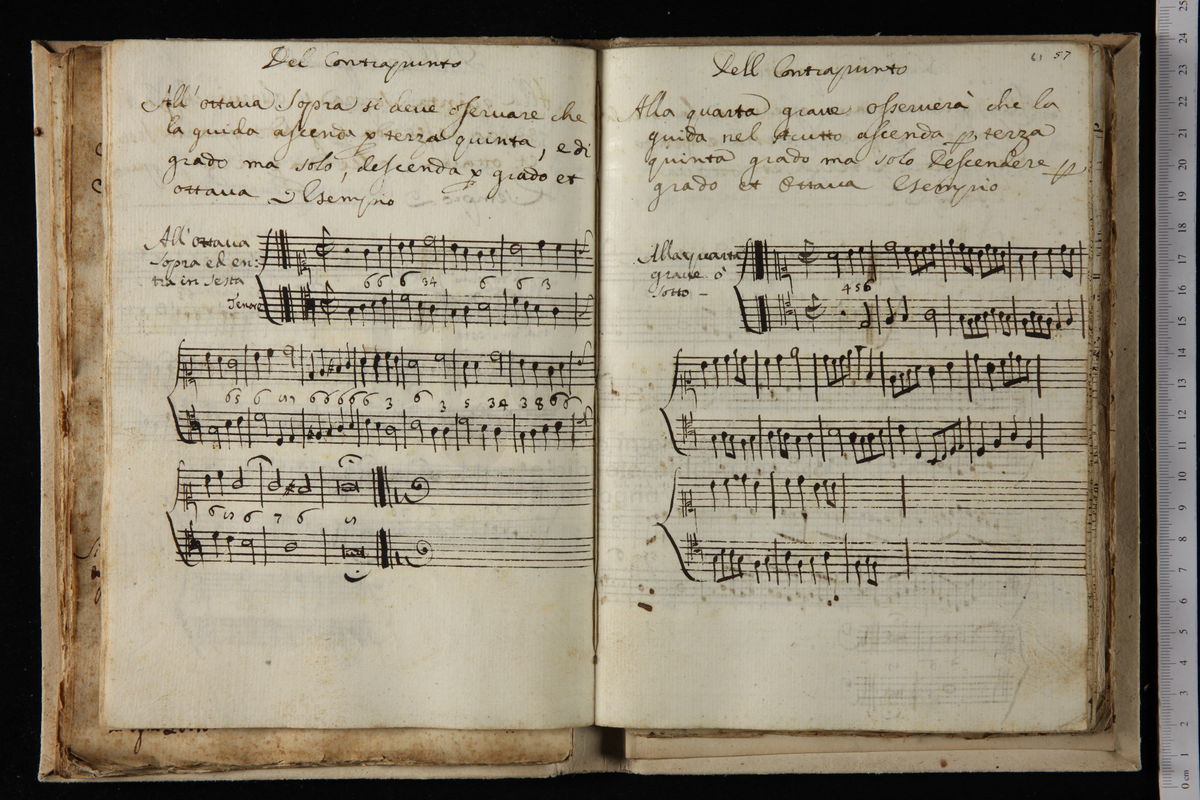 Del Contrapunto
All'ottava Sopra si deve osservare che
la guida ascenda p terza quinta, e di
grado ma solo, descenda p grado et
ottava Esempio
All'ottava
Sopra ed en:
tra in Sesta
Tenore
6 6 6 34 6 6 3
65 6 6 6 6 6 6 3 6 3 5 34 3 8 6 6
6 5 6 7 6
Dell Contrapunto
57
Alla quarta grave osserverà che la
guida nel tutto ascenda p terza
quinta grado ma solo descendere p
grado et Ottava Esempio
Alla quarta
grave ò
sotto -
4 5 6